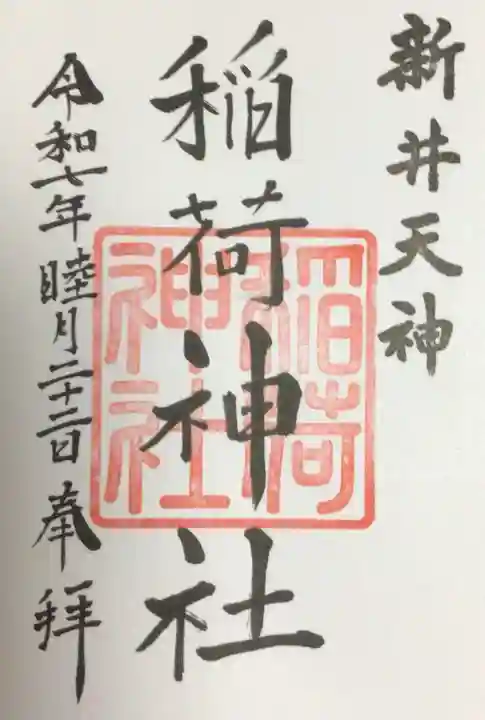 新井天神
稲荷神社
稲荷神社
令和七年睦月二十二日奉拝